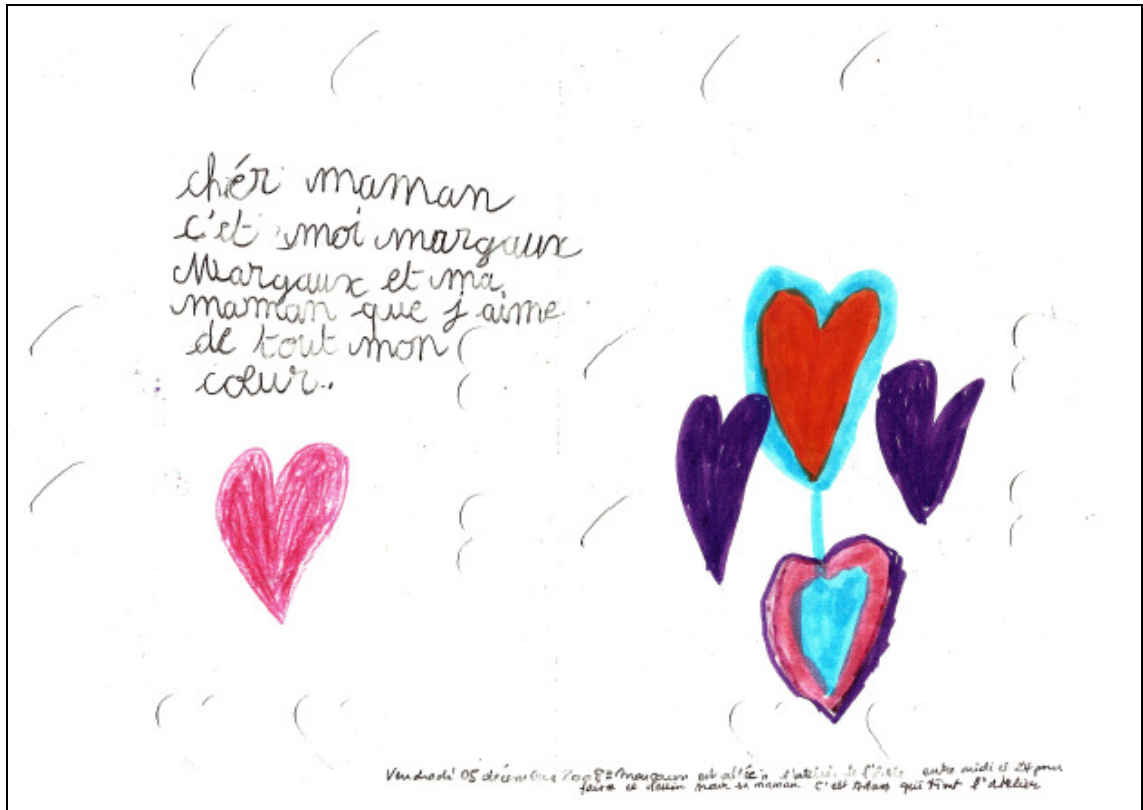 chér maman
c'et moi margaux
Margaux et ma
maman que j'aime
de tout mon
cœur..
Vendredi 05 décembre 2008 = Margaux est allée à l'atelier de entre midi et 2H pour
faire ce dessin pour sa maman. C'est Adam qui tint l'atelier